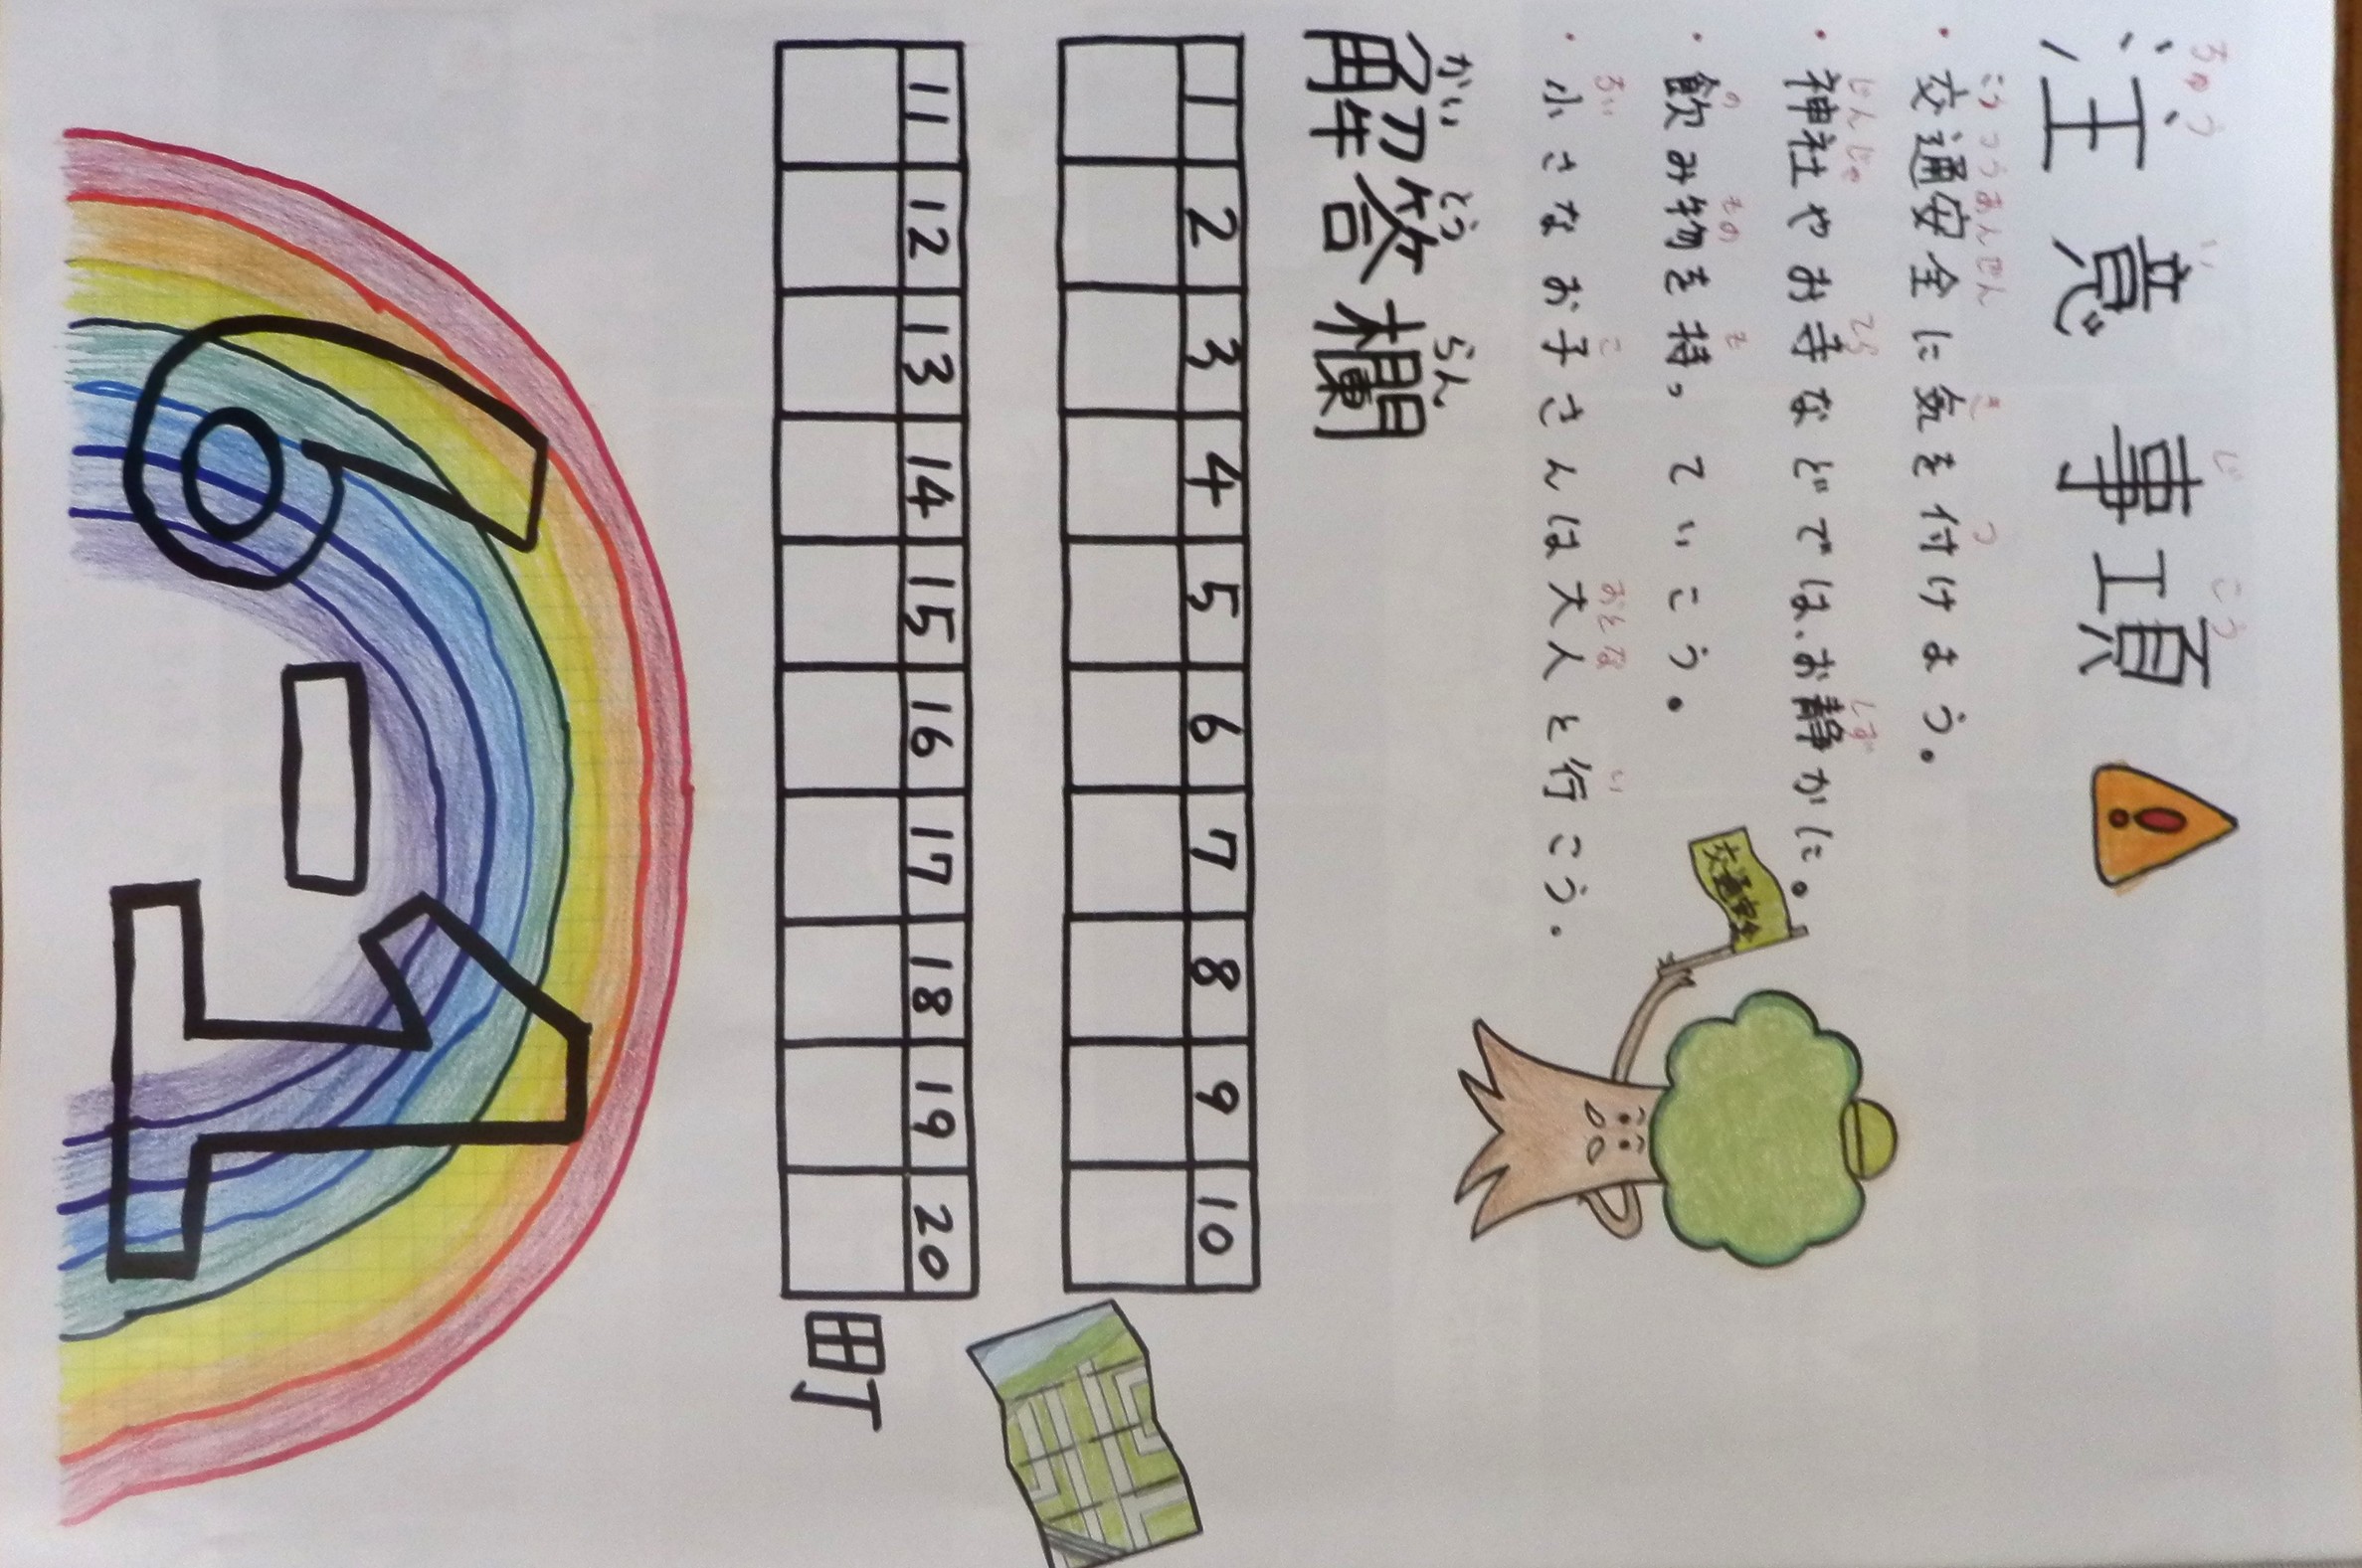 注意事項
・交通安全に気を付けましょう。
・神社やお寺などでは、お静かに。
・飲み物を持っていこう。
・小さなお子さんは大人と行こう。
交通安全
解答欄
1 2 3 4 5 6 7 8 9 10
11 12 13 14 15 16 17 18 19 20
町
6-1